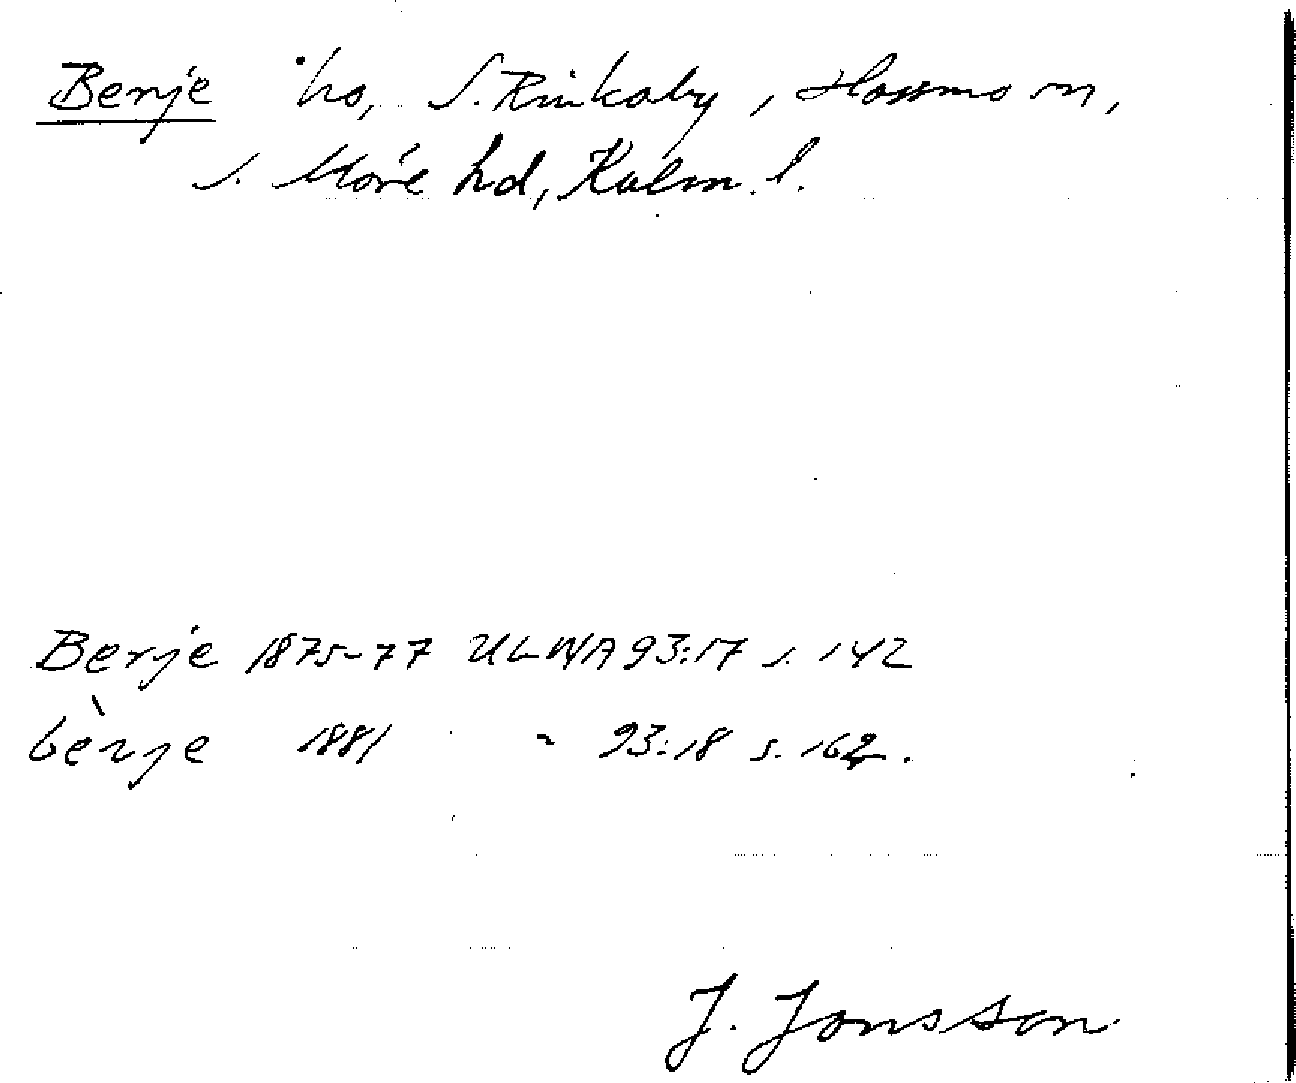 Berje ho, S. Rinkaby, Hossmo sn,
S. Möre hd, Kalm. l.
Berje 1875-77 ULMA 93:17 s. 142
bèrje 1881 " 93:18 s. 162.
J. Jonsson